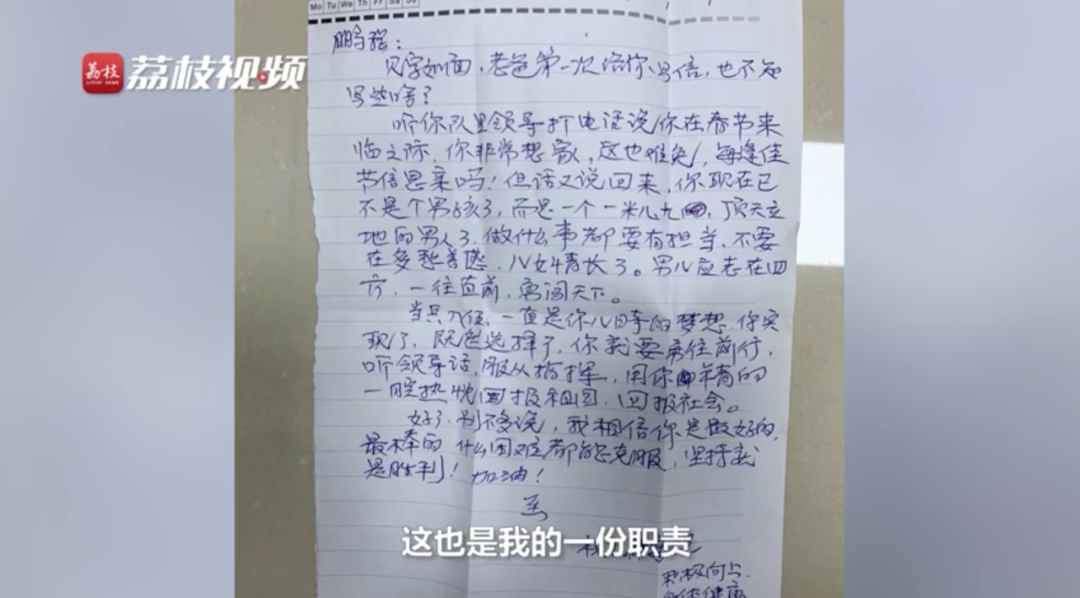 Mo Tu We Th Fr Sa Su
荔枝
荔枝视频
鹏程：
见字如面，老爸第一次给你写信，也不知
写些啥？
听你队里领导打电话说你在春节来
临之际，你非常想家，这也难免，每逢佳
节倍思亲吗！但话又说回来，你现在已
不是个男孩了，而是一个一米八九，顶天立
地的男人了，做什么事都要有担当，不要
在多愁善感，儿女情长了。男儿应志在四
方，一往直前，勇闯天下。
当兵入伍，一直是你儿时的梦想，你实
现了，既然选择了，你就要勇往前行，
听领导话，服从指挥，用你年青的
一腔热忱回报祖国，回报社会。
好了，别不多说，我相信你是最好的，
最棒的，什么困难都能克服，坚持就
是胜利！加油！
这也是我的一份职责
积极向上
身体健康